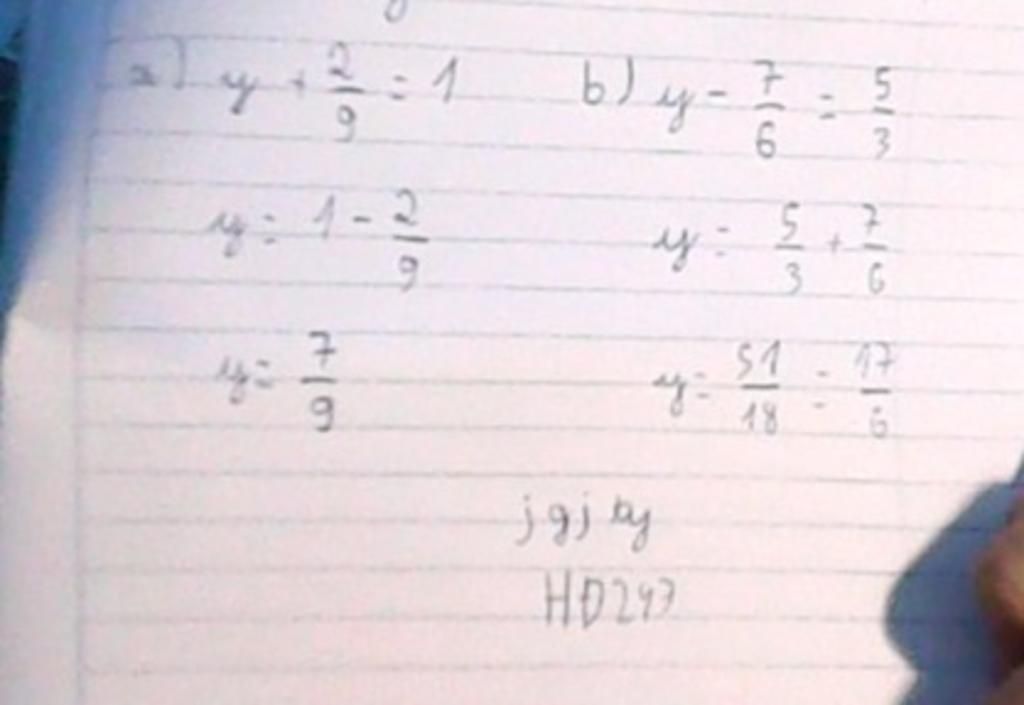 a) y + 2/9 = 1
y = 1 - 2/9
y = 7/9
b) y - 7/6 = 5/3
y = 5/3 + 7/6
y = 51/18 = 17/6
HD247